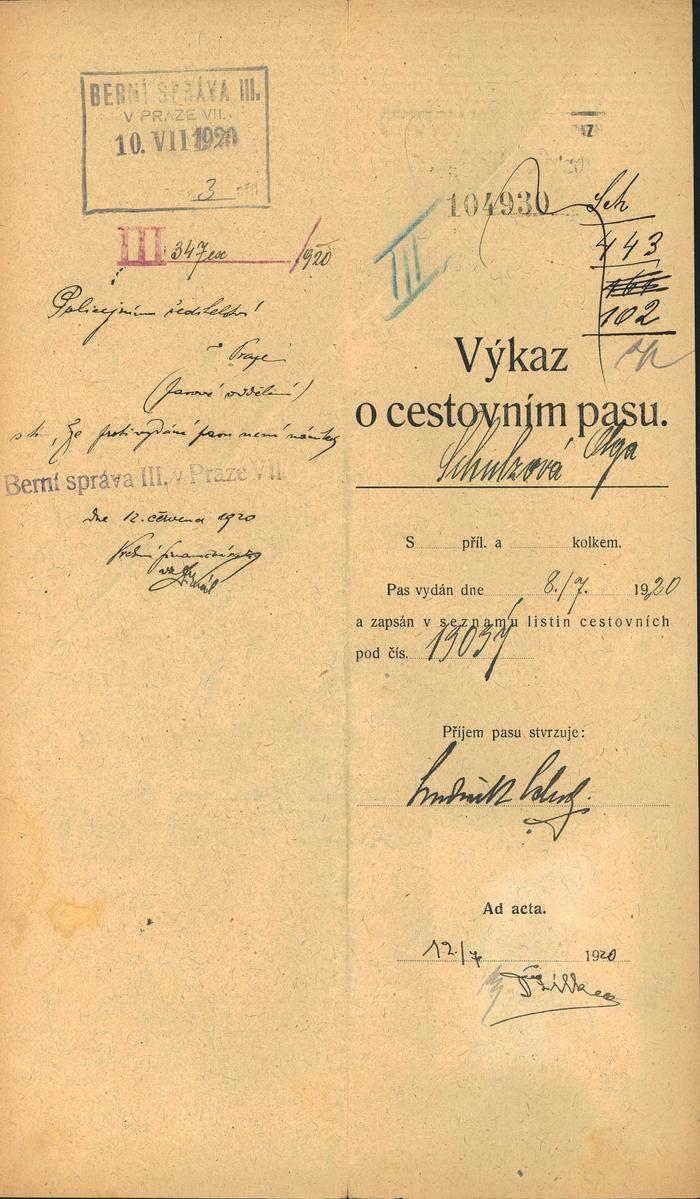 BERNÍ SPRÁVA III.
V PRAZE VII.
10. VII 1920
3 příl
III 347 1920
Policejnímu ředitelství
v Praze
(pasové oddělení)
s tím, že proti vydání pasu není námitky
Berní správa III. v Praze VII.
dne 12. června 1920
104930
Sch
443
102
III
Výkaz
o cestovním pasu.
Schulzová Olga
S příl. a kolkem.
Pas vydán dne 8./7. 1920
a zapsán v seznamu listin cestovních
pod čís.
Příjem pasu stvrzuje:
Ad acta.
12./7 1920